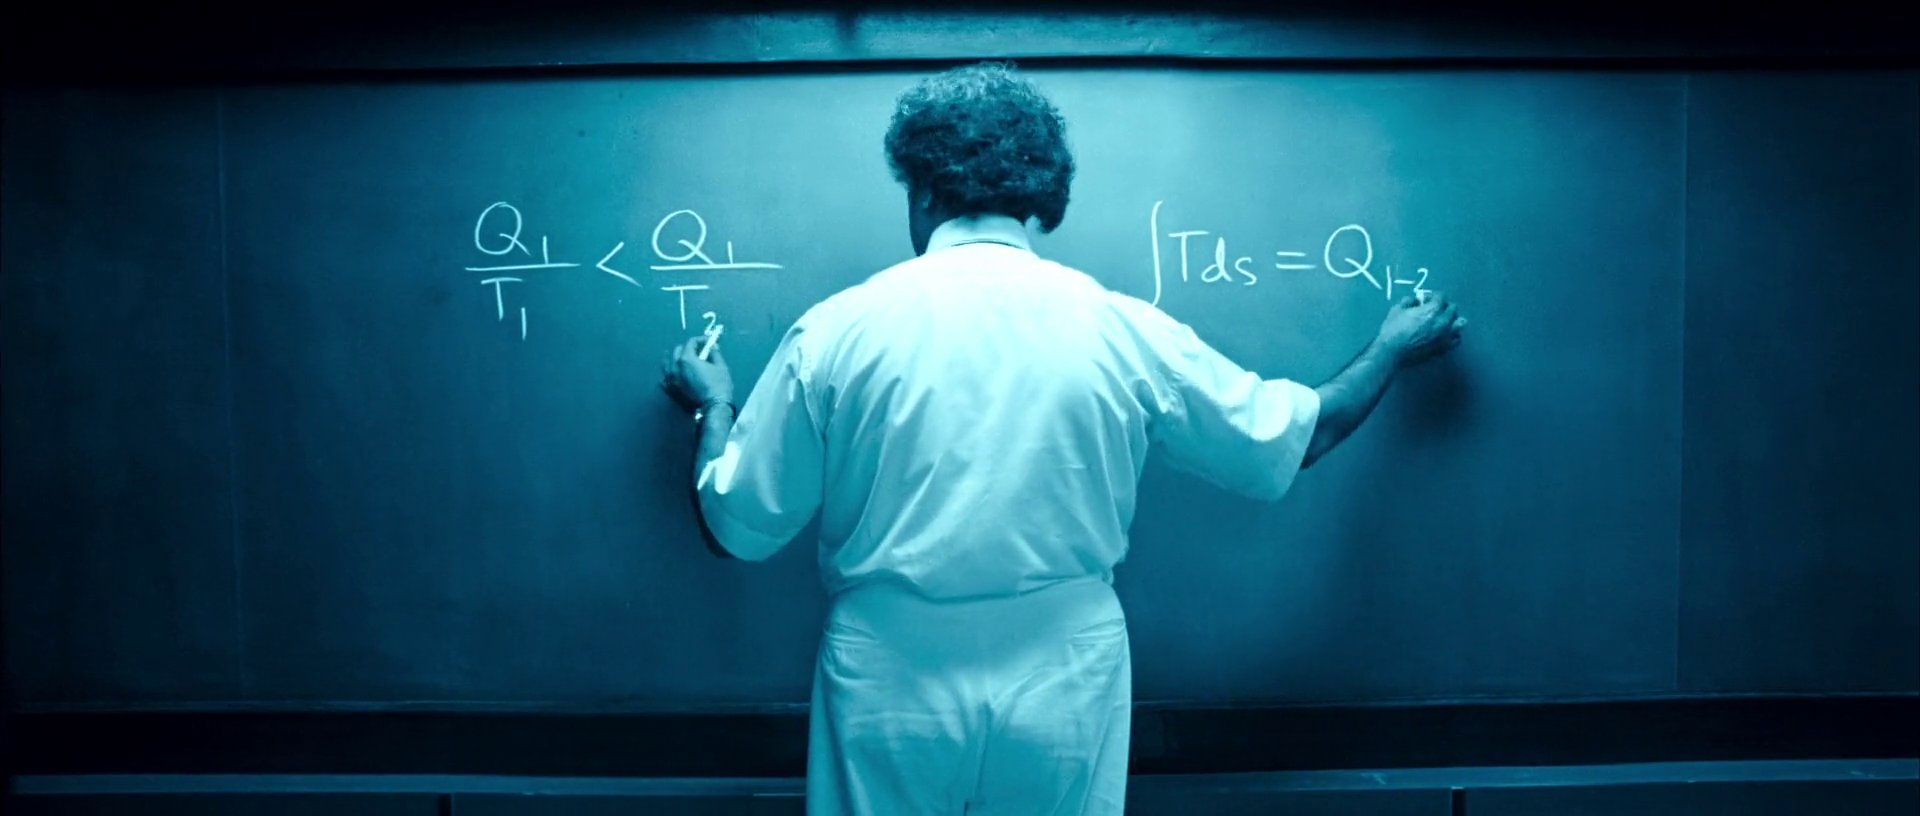 Q₁/T₁ < Q₁/T₂
∫Tds = Q₁₋₂